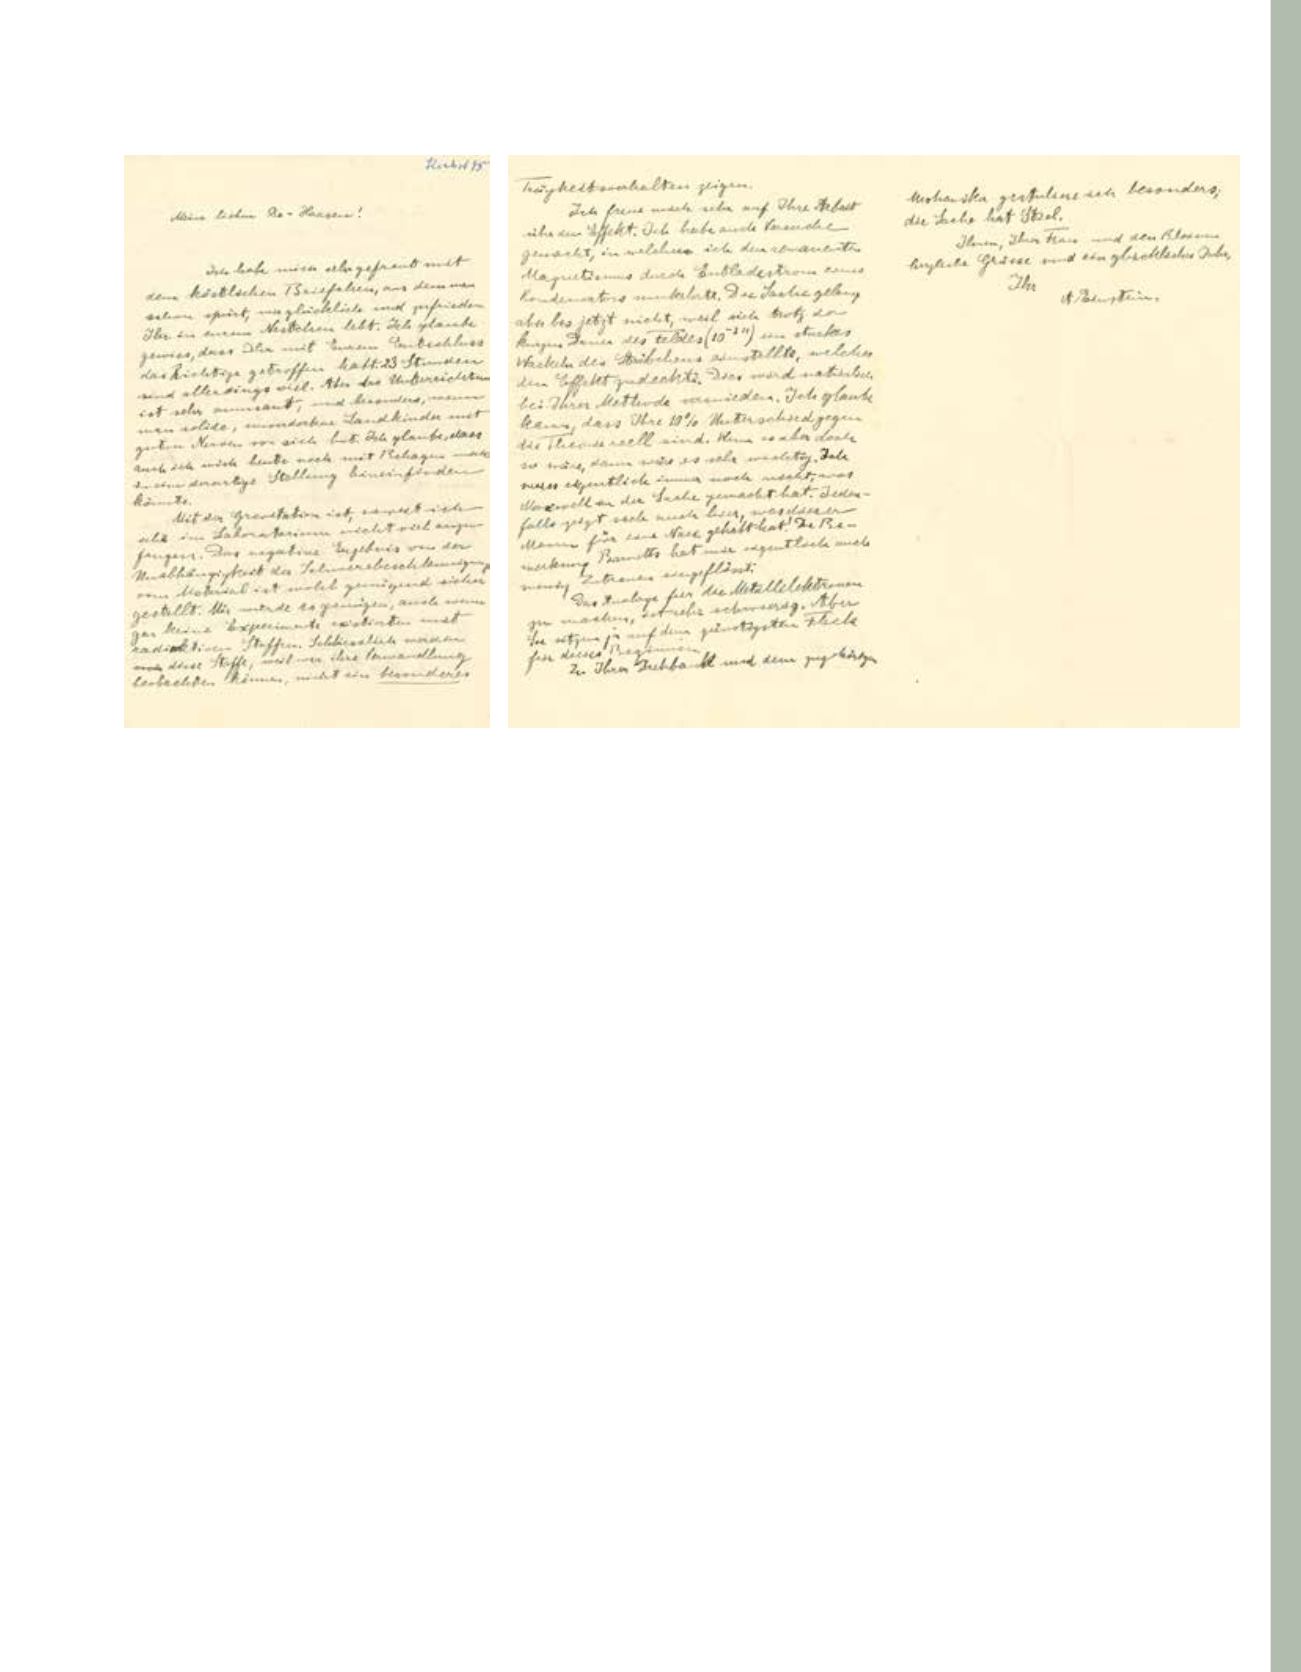 Herbst 15
Meine lieben De-Haasen!
Ich habe mich sehr gefreut mit
dem köstlichen Briefchen, aus dem man
schon spürt, wie glücklich und zufrieden
Ihr in eurem Nestchen lebt. Ich glaube
gewiss, dass Ihr mit Eurem Entschluss
das Richtige getroffen habt. 23 Stunden
sind allerdings viel. Aber das Unterrichten
ist sehr amusant, und besonders, wenn
man solide, unverdorbene Landkinder mit
guten Nerven vor sich hat. Ich glaube, dass
auch ich mich heute noch mit Behagen
in eine derartige Stellung hineinfinden
könnte.
Mit der Gravitation ist, soweit ich
sehe im Laboratorium nicht viel anzu-
fangen. Das negative Ergebnis von der
Unabhängigkeit der Schwerebeschleunigung
vom Material ist wohl genügend sicher
gestellt. Mir würde es genügen, auch wenn
gar keine Experimente existierten mit
radioaktiven Stoffen. Schliesslich werden
diese Stoffe, weil wir ihre Verwandlung
beobachten können, nicht ein besonderes
Trägheitsverhalten zeigen.
Ich freue mich sehr auf Ihre Arbeit
über den Effekt. Ich habe auch Versuche
gemacht, in welchen ich den remanenten
Magnetismus durch Entladestrom eines
Kondensators umkehrte. Die Sache gelang
aber bis jetzt nicht, weil sich trotz der
kurzen Dauer des Feldes (10⁻³ ″) ein starkes
Wackeln des Stäbchens einstellte, welches
den Effekt zudeckte. Dies wird natürlich
bei Ihrer Methode vermieden. Ich glaube
kaum, dass Ihre 10% Unterschied gegen
die Theorie reell sind. Wenn es aber doch
so wäre, dann wäre es sehr wichtig. Ich
weiss eigentlich immer noch nicht, was
Maxwell an der Sache gemacht hat. Jeden-
falls zeigt sich auch hier, was dieser
Mann für eine Nase gehabt hat! Die Be-
merkung Barnetts hat mir eigentlich auch
wenig Zutrauen eingeflösst.
Das Analoge für die Metallelektronen
zu machen, ist sehr schwierig. Aber
Sie sitzen ja auf dem günstigsten Fleck
für dieses Beginnen.
Zu Ihrer Drehbank und dem zugehörigen
Mechanika gratuliere ich besonders;
die Sache hat Stiel.
Ihnen, Ihrer Frau und den Kleinen
herzliche Grüsse und ein glückliches Jahr,
Ihr
A. Einstein.